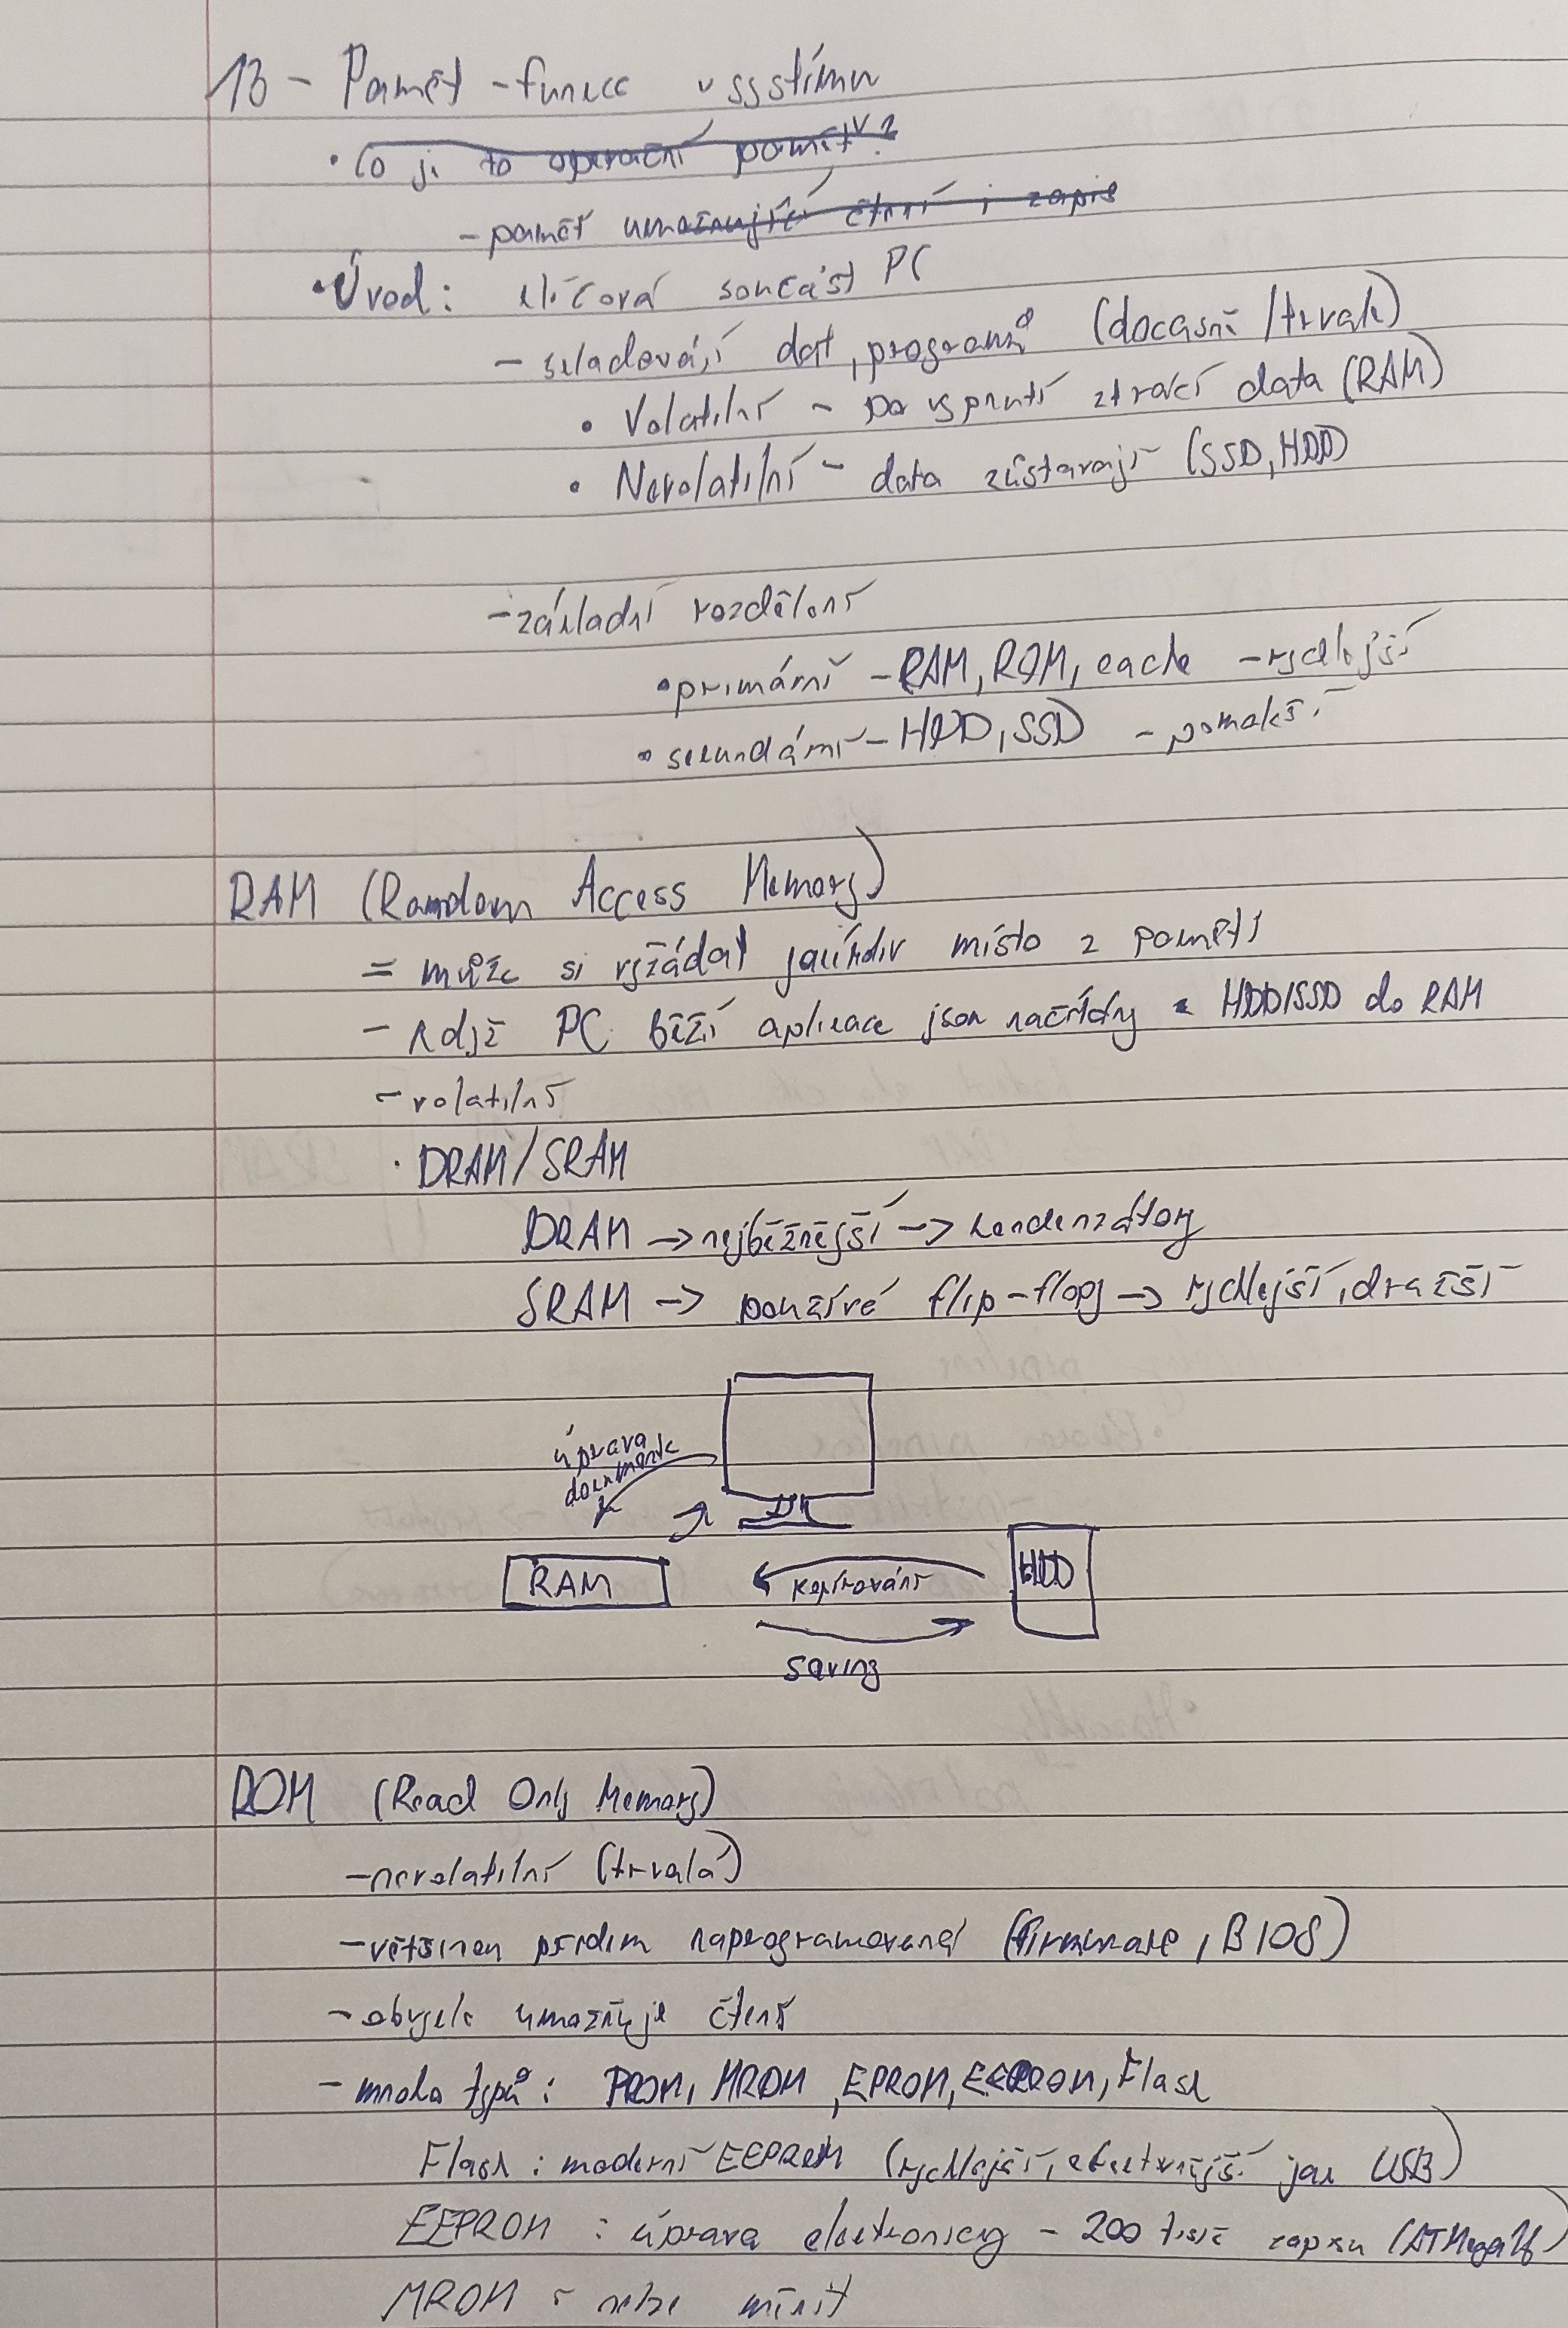 13 - Paměť - funkce v systému
• Co je to operační paměť?
- paměť umožnující čtení i zápis
• Úvod: klíčová součást PC
- skladování dat, programů (dočasně / trvale)
• Volatilní - po vypnutí ztrácí data (RAM)
• Nevolatilní - data zůstávají (SSD, HDD)
- základní rozdělení
• primární - RAM, ROM, cache - rychlejší
• sekundární - HDD, SSD - pomalejší
RAM (Random Access Memory)
= může si vyžádat jakékoliv místo z paměti
- když PC běží aplikace jsou načítány z HDD/SSD do RAM
- volatilní
• DRAM / SRAM
DRAM -> nejběžnější -> kondenzátory
SRAM -> používá flip-flopy -> rychlejší, dražší
úprava
dokumentu
RAM
kopírování
HDD
saving
ROM (Read Only Memory)
- nevolatilní (trvalá)
- většinou předem naprogramovaná (firmware, BIOS)
- obvykle umožňuje čtení
- mnoho typů: PROM, MROM, EPROM, EEPROM, Flash
Flash: moderní EEPROM (rychlejší, efektivnější jak USB)
EEPROM: úprava elektronicky - 200 tisíc zápisu (ATMega16)
MROM: nelze měnit